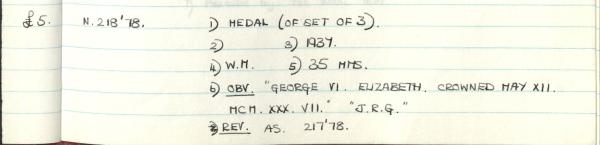 £5. N.218'78. 1) MEDAL (OF SET OF 3).
2) 3) 1937.
4) W.M. 5) 35 MMS.
6) OBV. "GEORGE VI. ELIZABETH. CROWNED MAY XII.
MCM. XXX. VII." "J.R.G."
7) REV. AS. 217'78.